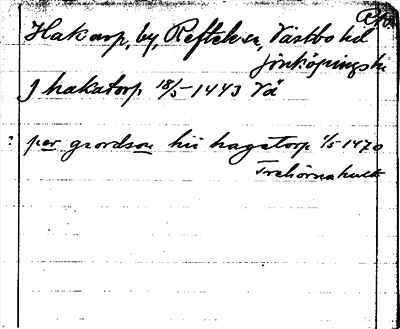 Hakarp, by, Reftele sn, Västbo hd
Jönköpings l.
J hakatorp 18/5 1443 Vä
? per grordson hii hagatorp 1/5 1470